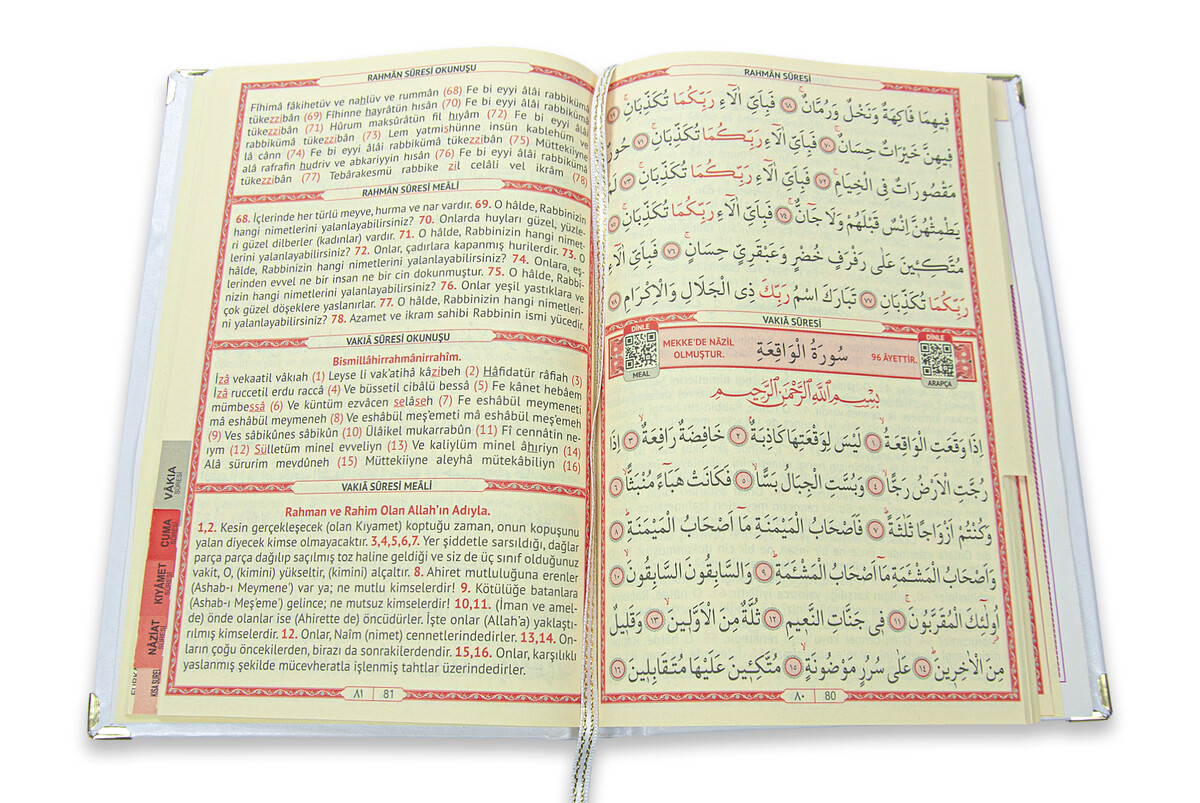 RAHMÂN SÛRESİ OKUNUŞU
Fîhimâ fâkihetüv ve nahlüv ve rummân (68) Fe bi eyyi âlâi rabbikümâ
tükezzibân (69) Fîhinne hayrâtün hısân (70) Fe bi eyyi âlâi
rabbikümâ tükezzibân (71) Hûrum maksûrâtün fil hıyâm (72) Fe bi eyyi âlâi
rabbikümâ tükezzibân (73) Lem yatmishünne insün kablehüm ve
lâ cânn (74) Fe bi eyyi âlâi rabbikümâ tükezzibân (75) Müttekiiyne
alâ rafrafin hudriv ve abkariyyin hısân (76) Fe bi eyyi âlâi rabbikümâ
tükezzibân (77) Tebârakesmü rabbike zil celâli vel ikrâm (78)
RAHMÂN SÛRESİ MEÂLİ
68. İçlerinde her türlü meyve, hurma ve nar vardır. 69. O hâlde, Rabbinizin
hangi nimetlerini yalanlayabilirsiniz? 70. Onlarda huyları güzel, yüzle-
ri güzel dilberler (kadınlar) vardır. 71. O hâlde, Rabbinizin hangi nimet-
lerini yalanlayabilirsiniz? 72. Onlar, çadırlara kapanmış hurilerdir. 73. O
hâlde, Rabbinizin hangi nimetlerini yalanlayabilirsiniz? 74. Onlara, eş-
lerinden evvel ne bir insan ne bir cin dokunmuştur. 75. O hâlde, Rabbi-
nizin hangi nimetlerini yalanlayabilirsiniz? 76. Onlar yeşil yastıklara ve
çok güzel döşeklere yaslanırlar. 77. O hâlde, Rabbinizin hangi nimetleri-
ni yalanlayabilirsiniz? 78. Azamet ve ikram sahibi Rabbinin ismi yücedir.
VAKIÂ SÛRESİ OKUNUŞU
Bismillâhirrahmânirrahîm.
İzâ vekaatil vâkıah (1) Leyse li vak'atihâ kâzibeh (2) Hâfidatür râfiah (3)
İzâ ruccetil erdu raccâ (4) Ve büssetil cibâlü bessâ (5) Fe kânet hebâem
mümbessâ (6) Ve küntüm ezvâcen selâseh (7) Fe eshâbül meymeneti
mâ eshâbül meymeneh (8) Ve eshâbül meş'emeti mâ eshâbül meş'emeh
(9) Ves sâbikûnes sâbikûn (10) Ülâikel mukarrabûn (11) Fî cennâtin ne-
ıym (12) Sülletüm minel evveliyn (13) Ve kaliylüm minel âhıriyn (14)
Alâ sürurim mevdûneh (15) Müttekiiyne aleyhâ mütekâbiliyn (16)
VAKIÂ SÛRESİ MEÂLİ
Rahman ve Rahim Olan Allah'ın Adıyla.
1,2. Kesin gerçekleşecek (olan Kıyamet) koptuğu zaman, onun kopuşunu
yalan diyecek kimse olmayacaktır. 3,4,5,6,7. Yer şiddetle sarsıldığı, dağlar
parça parça dağılıp saçılmış toz haline geldiği ve siz de üç sınıf olduğunuz
vakit, O, (kimini) yükseltir, (kimini) alçaltır. 8. Ahiret mutluluğuna erenler
(Ashab-ı Meymene') var ya; ne mutlu kimselerdir! 9. Kötülüğe batanlara
(Ashab-ı Meş'eme') gelince; ne mutsuz kimselerdir! 10,11. (İman ve amel-
de) önde olanlar ise (Ahirette de) öncüdürler. İşte onlar (Allah'a) yaklaştı-
rılmış kimselerdir. 12. Onlar, Naîm (nimet) cennetlerindedirler. 13,14. On-
ların çoğu öncekilerden, birazı da sonrakilerdendir. 15,16. Onlar, karşılıklı
yaslanmış şekilde mücevheratla işlenmiş tahtlar üzerindedirler.
٨١ 81
VÂKIA SÛRESİ
CUMA SÛRESİ
KIYÂMET SÛRESİ
NÂZİÂT SÛRESİ
RAHMÂN SÛRESİ
فِيهِمَا فَاكِهَةٌ وَنَخْلٌ وَرُمَّانٌ ۚ ٦٨ فَبِاَيِّ اٰلَٓاءِ رَبِّكُمَا تُكَذِّبَانِ ۚ ٦٩
فِيهِنَّ خَيْرَاتٌ حِسَانٌ ۚ ٧٠ فَبِاَيِّ اٰلَٓاءِ رَبِّكُمَا تُكَذِّبَانِ ۚ ٧١ حُورٌ
مَقْصُورَاتٌ فِي الْخِيَامِ ۚ ٧٢ فَبِاَيِّ اٰلَٓاءِ رَبِّكُمَا تُكَذِّبَانِ ۚ ٧٣ لَمْ
يَطْمِثْهُنَّ اِنْسٌ قَبْلَهُمْ وَلَا جَٓانٌّ ۚ ٧٤ فَبِاَيِّ اٰلَٓاءِ رَبِّكُمَا تُكَذِّبَانِ ۚ ٧٥
مُتَّكِـِٔينَ عَلٰى رَفْرَفٍ خُضْرٍ وَعَبْقَرِيٍّ حِسَانٍ ۚ ٧٦ فَبِاَيِّ اٰلَٓاءِ
رَبِّكُمَا تُكَذِّبَانِ ٧٧ تَبَارَكَ اسْمُ رَبِّكَ ذِي الْجَلَالِ وَالْاِكْرَامِ ٧٨
VAKIÂ SÛRESİ
DİNLE
MEAL
MEKKE'DE NÂZİL
OLMUŞTUR.
سُورَةُ الْوَاقِعَةِ
96 ÂYETTİR.
DİNLE
ARAPÇA
بِسْمِ اللّٰهِ الرَّحْمٰنِ الرَّحِيمِ
اِذَا وَقَعَتِ الْوَاقِعَةُ ۙ ١ لَيْسَ لِوَقْعَتِهَا كَاذِبَةٌ ۢ ٢ خَافِضَةٌ رَافِعَةٌ ۙ ٣ اِذَا
رُجَّتِ الْاَرْضُ رَجًّا ۙ ٤ وَبُسَّتِ الْجِبَالُ بَسًّا ۙ ٥ فَكَانَتْ هَبَٓاءً مُنْبَثًّا ۙ ٦
وَكُنْتُمْ اَزْوَاجًا ثَلٰثَةً ۜ ٧ فَاَصْحَابُ الْمَيْمَنَةِ مَٓا اَصْحَابُ الْمَيْمَنَةِ ۜ ٨
وَاَصْحَابُ الْمَشْـَٔمَةِ مَٓا اَصْحَابُ الْمَشْـَٔمَةِ ۜ ٩ وَالسَّابِقُونَ السَّابِقُونَ ۙ ١٠
اُولٰٓئِكَ الْمُقَرَّبُونَ ۚ ١١ فِي جَنَّاتِ النَّعِيمِ ١٢ ثُلَّةٌ مِنَ الْاَوَّلِينَ ۙ ١٣ وَقَلِيلٌ
مِنَ الْاٰخِرِينَ ۜ ١٤ عَلٰى سُرُرٍ مَوْضُونَةٍ ۙ ١٥ مُتَّكِـِٔينَ عَلَيْهَا مُتَقَابِلِينَ ١٦
٨٠ 80